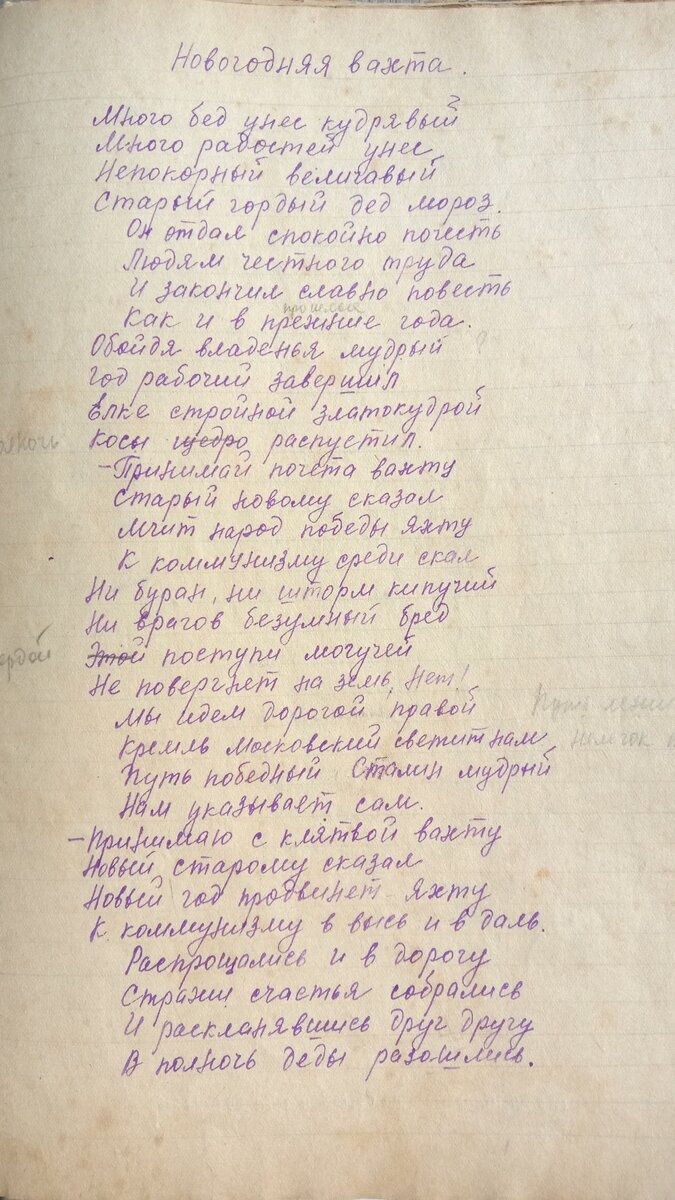 Новогодняя вахта.
Много бед унес кудрявый
Много радостей унес
Непокорный величавый
Старый гордый дед мороз.
Он отдал спокойно почесть
Людям честного труда
И закончил славно повесть
прошлые
Как и в прежние года.
Обойдя владенья мудрый
Год рабочий завершил
Елке стройной златокудрой
Косы щедро распустил.
- Принимай почета вахту
Старый новому сказал
Мчит народ победы яхту
К коммунизму среди скал
Ни буран, ни шторм кипучий
Ни врагов безумный бред
Этой поступи могучей
Не повергнет на земь, Нет!
Мы идем дорогой правой
Кремль Московский светит нам
Путь победный Сталин мудрый
Нам указывает сам.
- Принимаю с клятвой вахту
Новый старому сказал
Новый год продвинет яхту
К коммунизму в высь и в даль.
Распрощались и в дорогу
Стражи счастья собрались
И раскланявшись друг другу
В полночь деды разошлись.